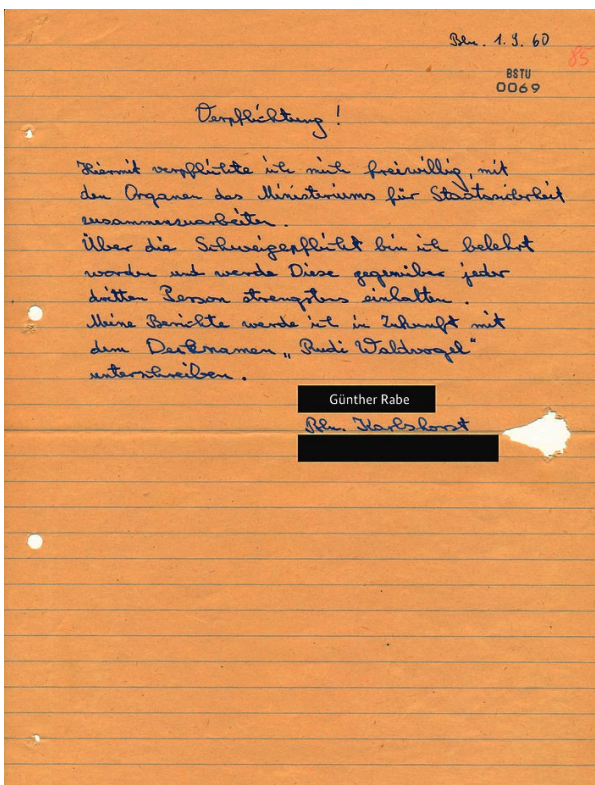 Bln. 1.9.60
85
BSTU
0069
Verpflichtung!
Hiermit verpflichte ich mich freiwillig, mit
den Organen des Ministeriums für Staatssicherheit
zusammenzuarbeiten.
Über die Schweigepflicht bin ich belehrt
worden und werde Diese gegenüber jeder
dritten Person strengstens einhalten.
Meine Berichte werde ich in Zukunft mit
dem Decknamen „Rudi Waldvogel"
unterschreiben.
Günther Rabe
Bln. Karlshorst